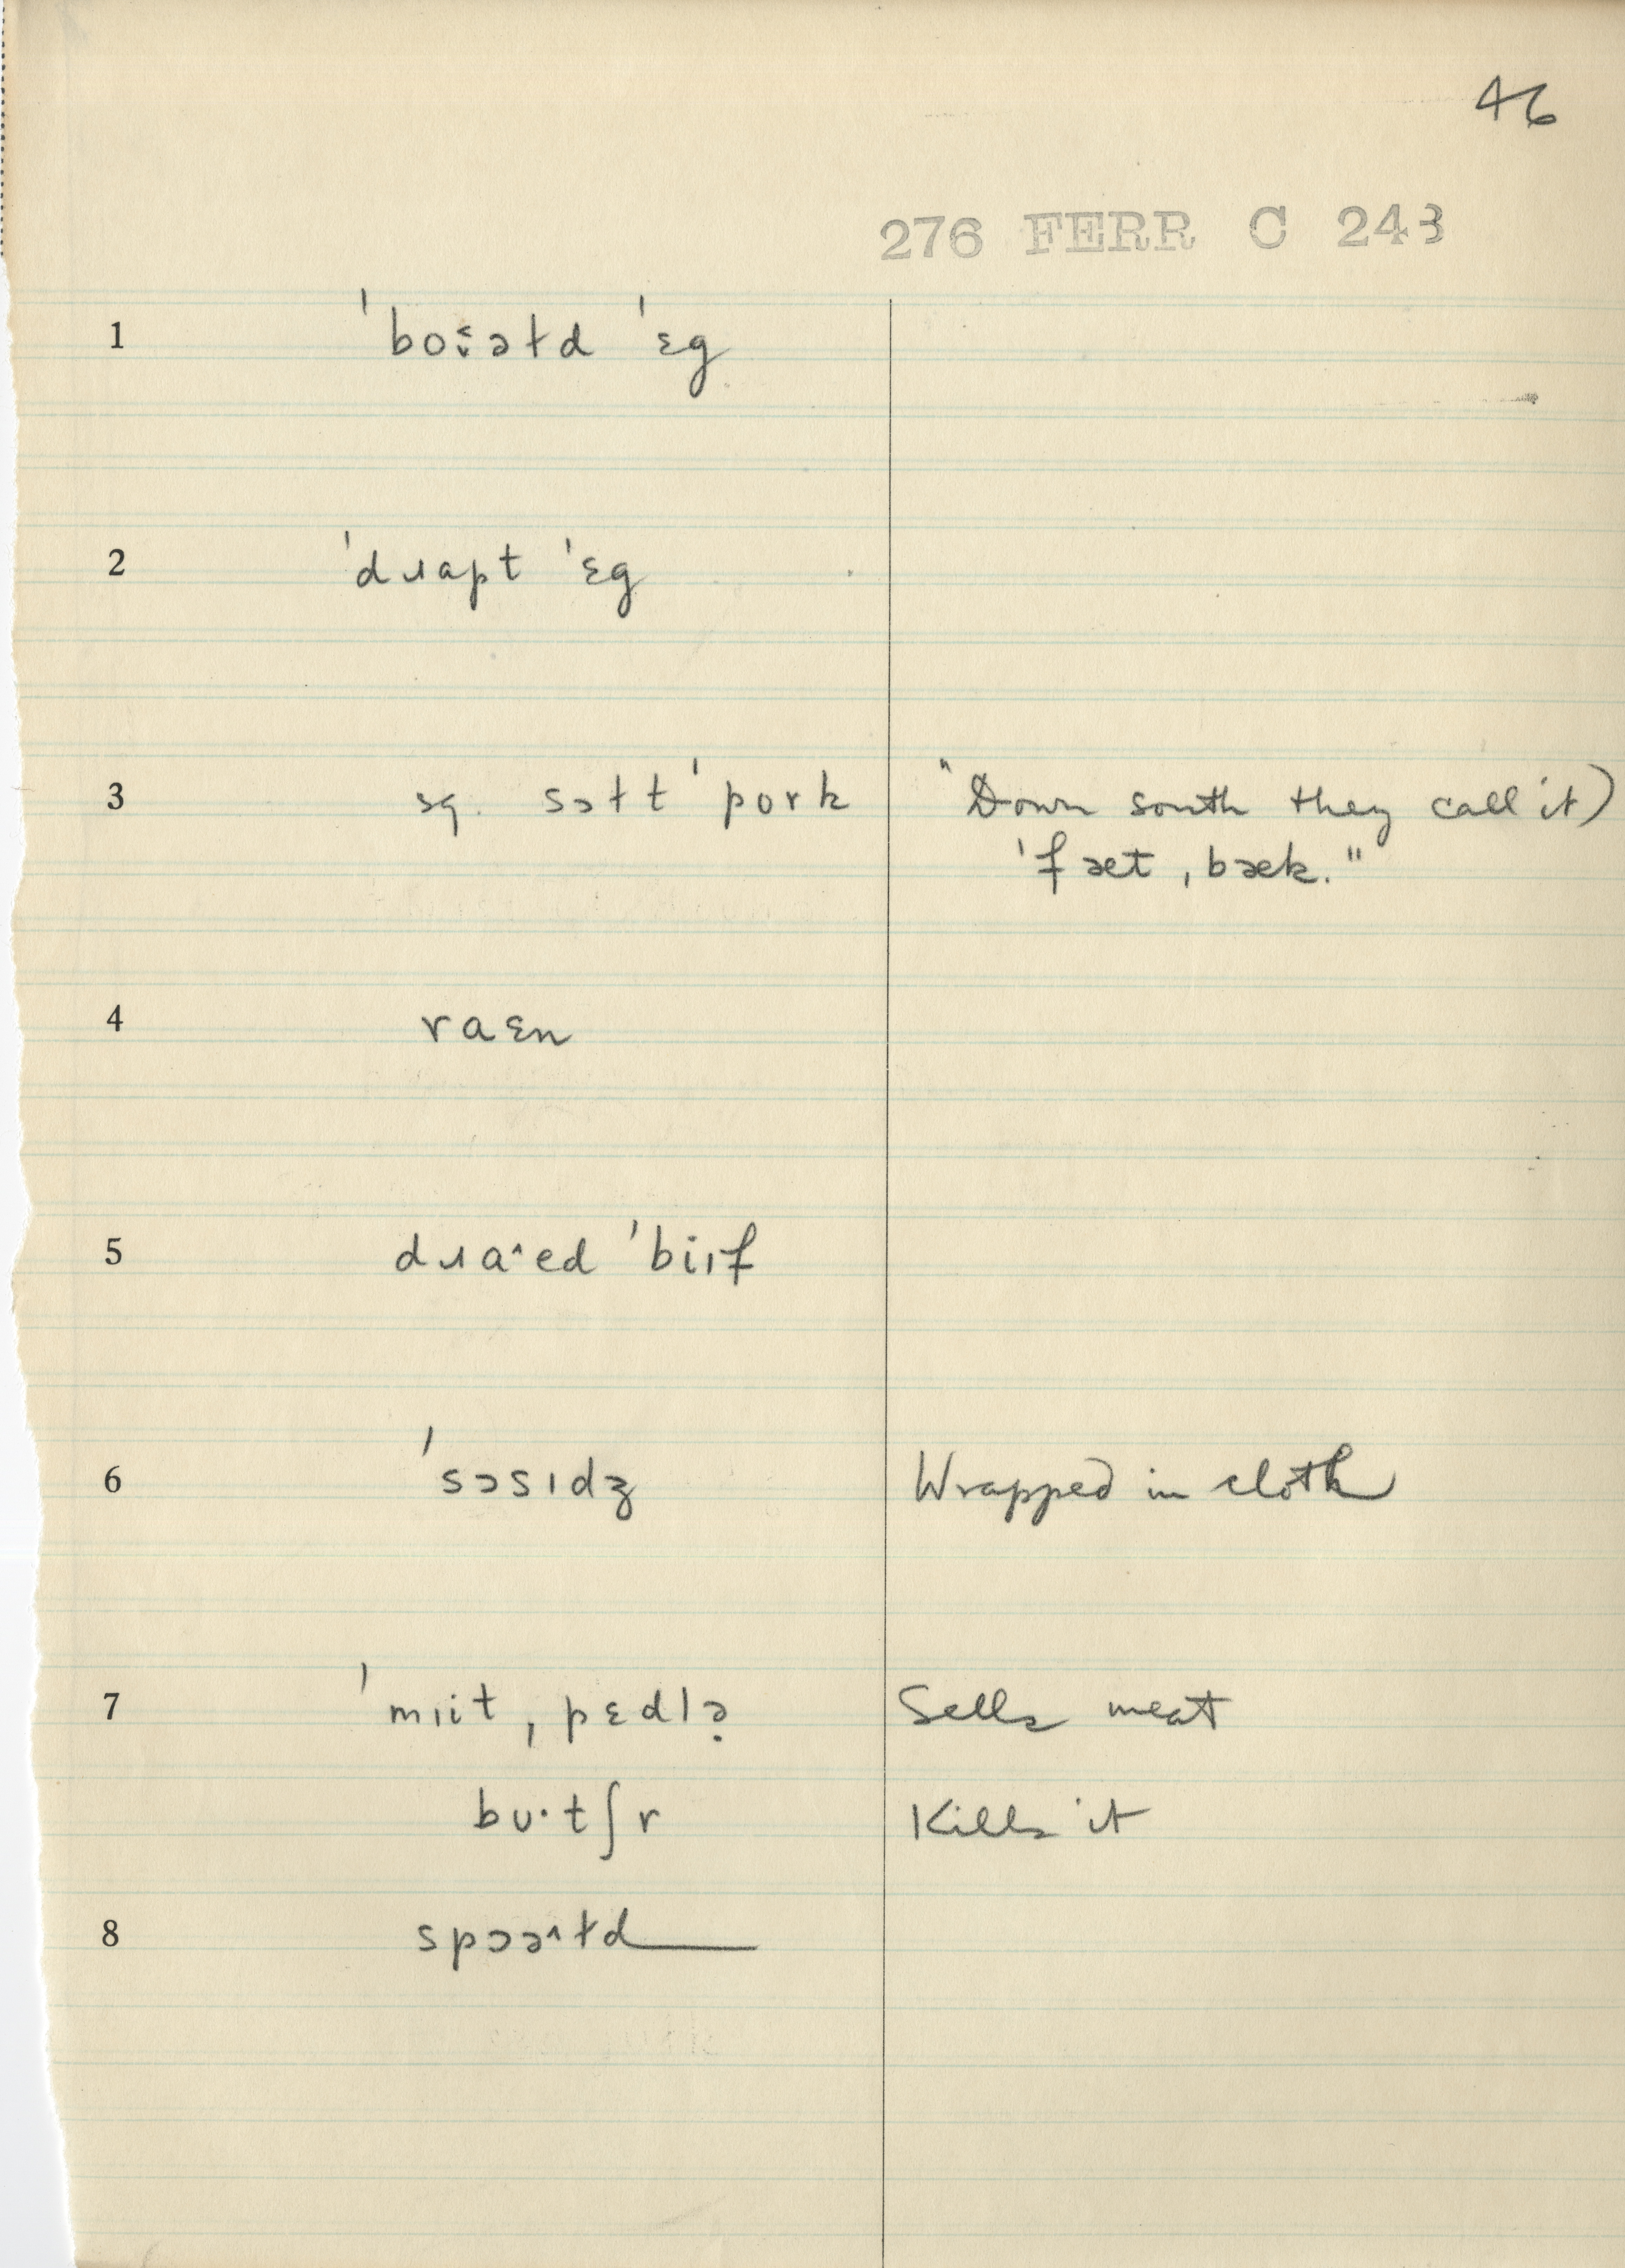 46
276 FERR C 243
1 ˈboɨ̞əɫd ˈɛg
2 ˈdɹapt ˈɛg
3 sq. sɔɫt ˈpork "Down south they call it)
ˈfæt ˌbæk."
4 raɛn
5 dɹaˆed ˈbiɪf
6 ˈsɔsɪdʒ Wrapped in cloth
7 ˈmɪit ˌpɛdlə̣ Sells meat
bʊ·tʃr Kills it
8 spɔəˆɫd